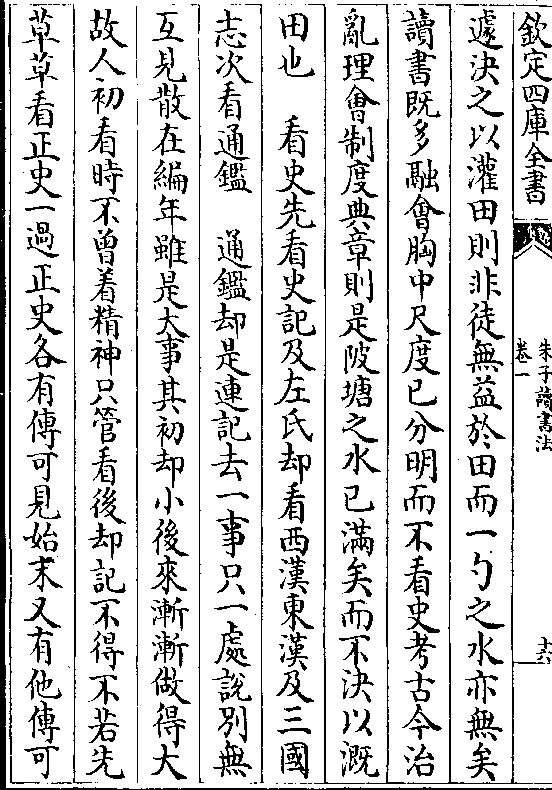 欽定四庫全書
朱子讀書法
卷一
十六
遽決之以灌田則非徒無益於田而一勺之水亦無矣
讀書既多融會胸中尺度已分明而不看史考古今治
亂理會制度典章則是陂塘之水已滿矣而不決以溉
田也　看史先看史記及左氏却看西漢東漢及三國
志次看通鑑　通鑑却是連記去一事只一處說別無
互見散在編年雖是大事其初却小後來漸漸做得大
故人初看時不曾着精神只管看後却記不得不若先
草草看正史一過正史各有傳可見始末又有他傳可